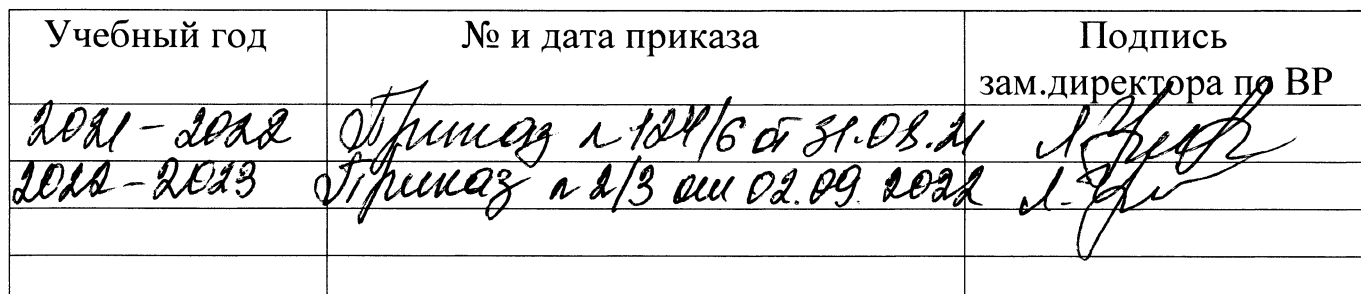 Учебный год № и дата приказа Подпись
зам.директора по ВР
2021-2022 Приказ № 124/6 от 31.08.21
2022-2023 Приказ № 2/3 от 02.09.2022